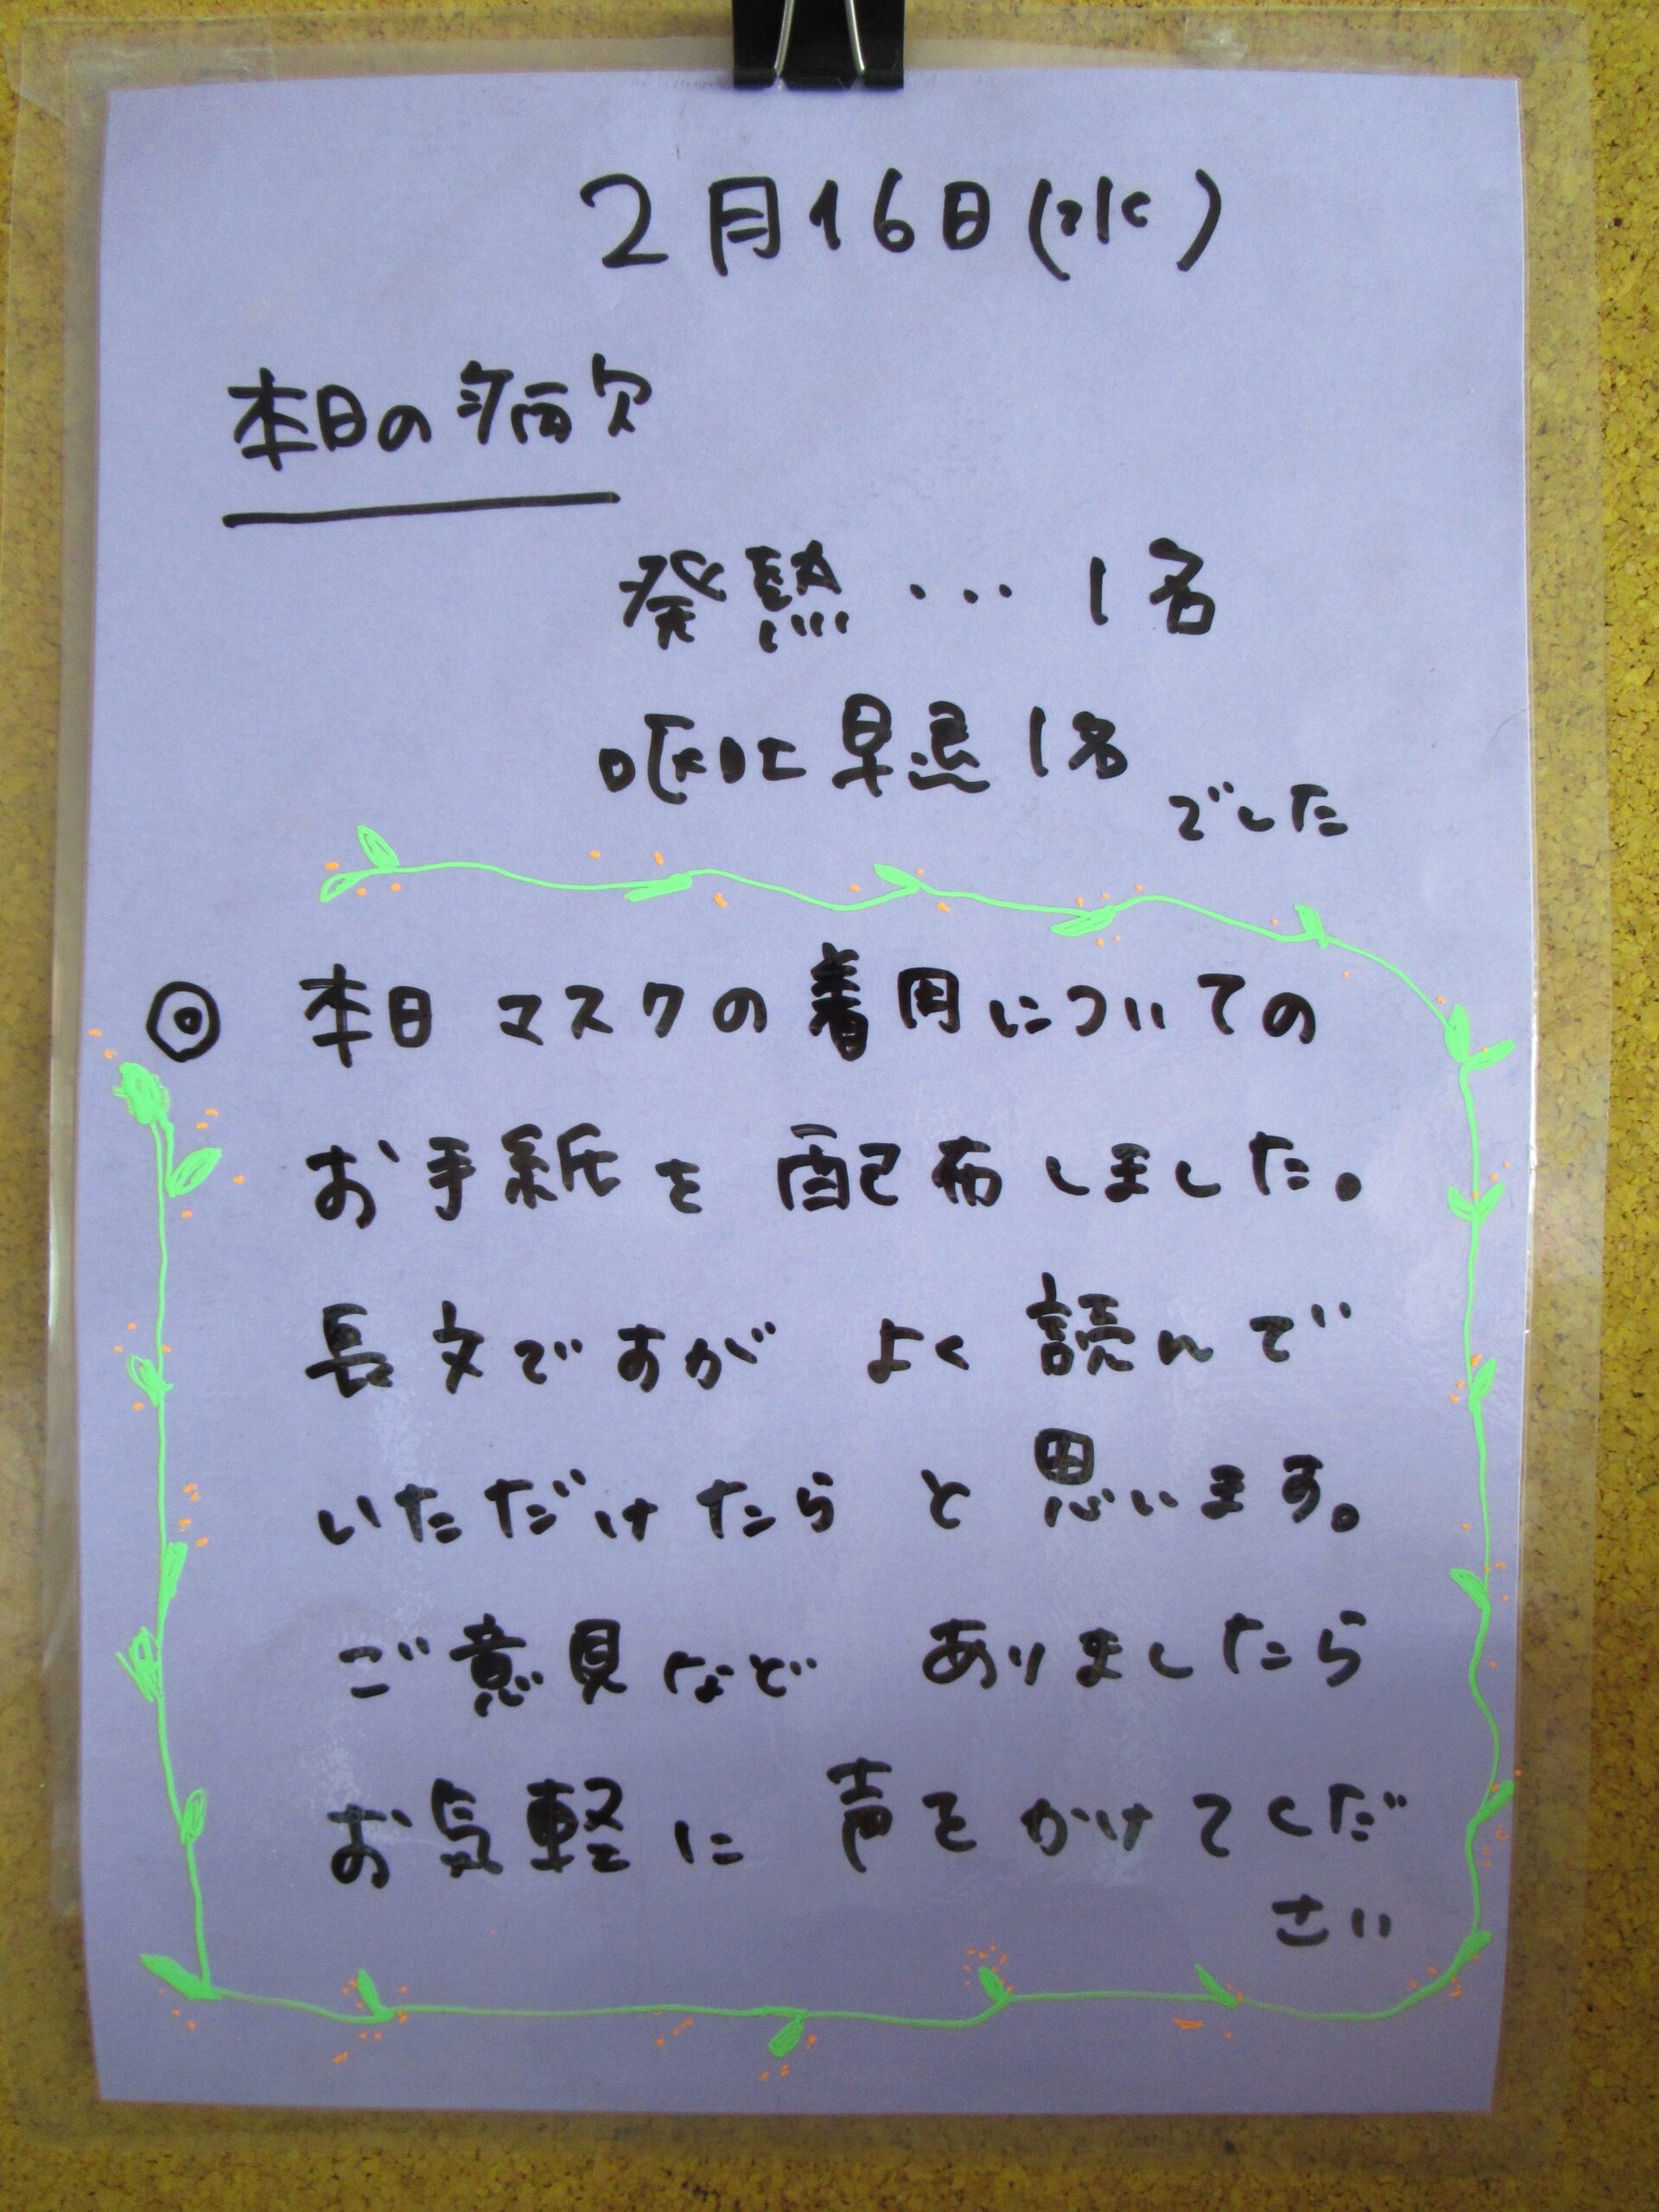 2月16日(水)
本日の病欠
発熱…1名
嘔吐早退1名
でした
◎ 本日 マスクの着用についての
お手紙を 配布しました。
長文ですが よく読んで
いただけたら と思います。
ご意見など ありましたら
お気軽に 声をかけてくだ
さい